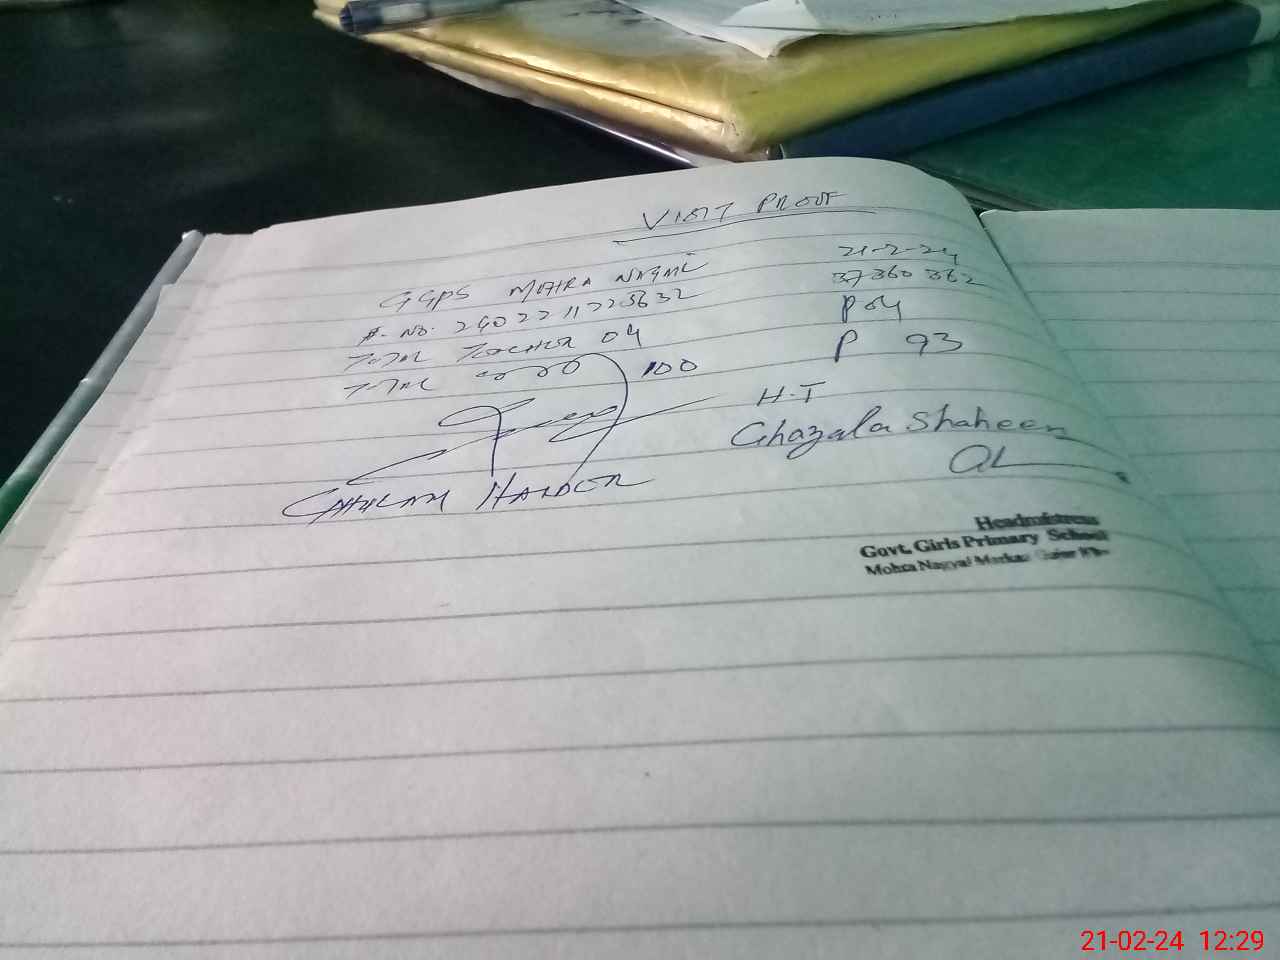 VISIT PROOF
GGPS MOHRA NAGYAL 21-2-24
A. No. 24022711225632 37360362
TOTAL TEACHER 04 P 04
TOTAL 100 P 93
H.T
Ghazala Shaheen
GHULAM HAIDER
Headmistress
Govt. Girls Primary School
Mohra Nagyal Markaz
21-02-24 12:29